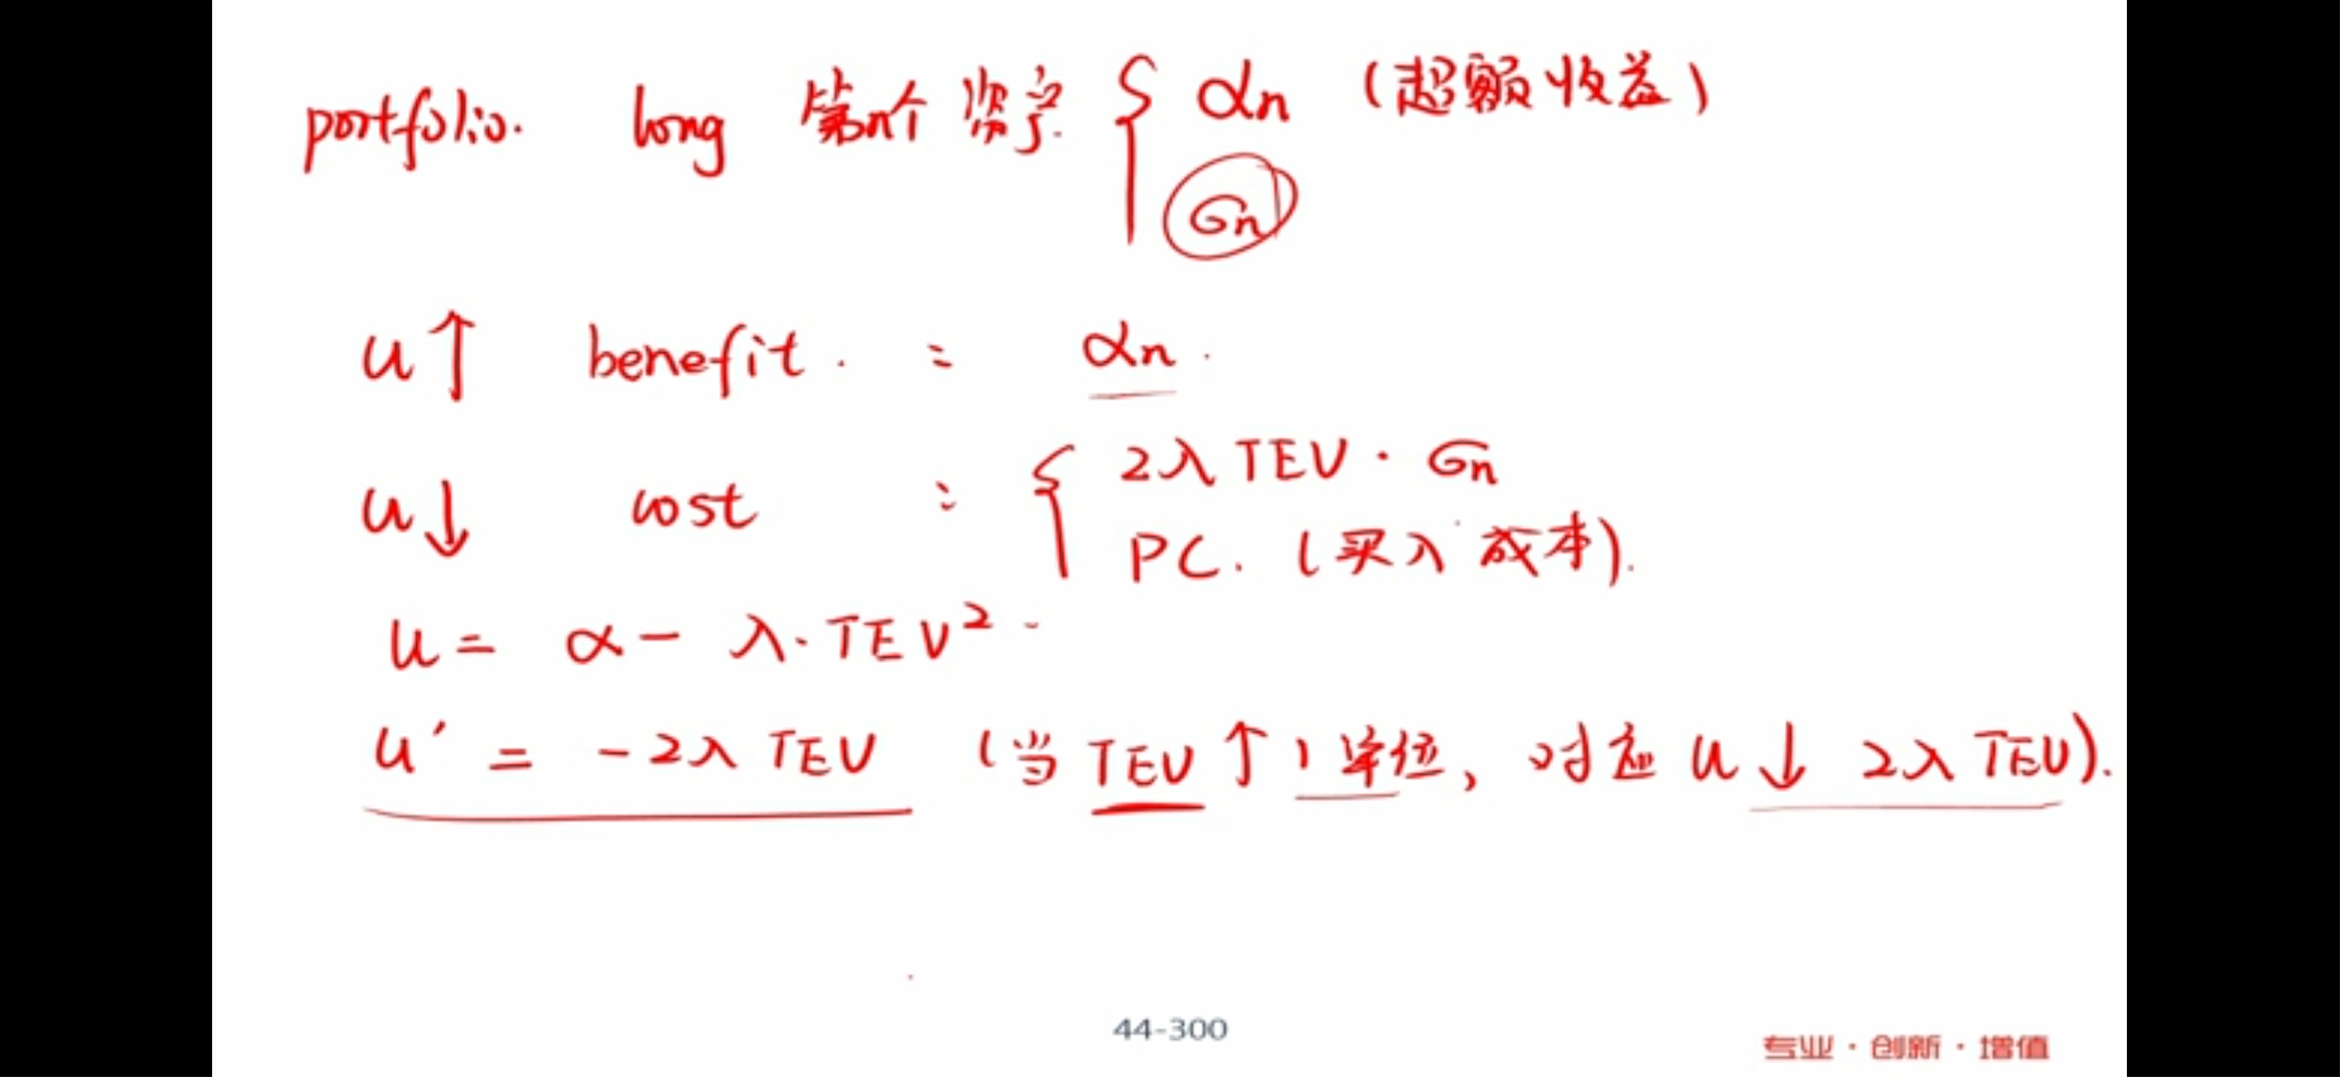 portfolio. long 第n个资产 { αn (超额收益)
σn
u↑ benefit : αn.
u↓ cost : { 2λTEV · σn
PC. (买入成本).
u = α - λ·TEV²
u′ = -2λTEV (当TEV↑1单位, 对应u↓2λTEV).
44-300
专业·创新·增值